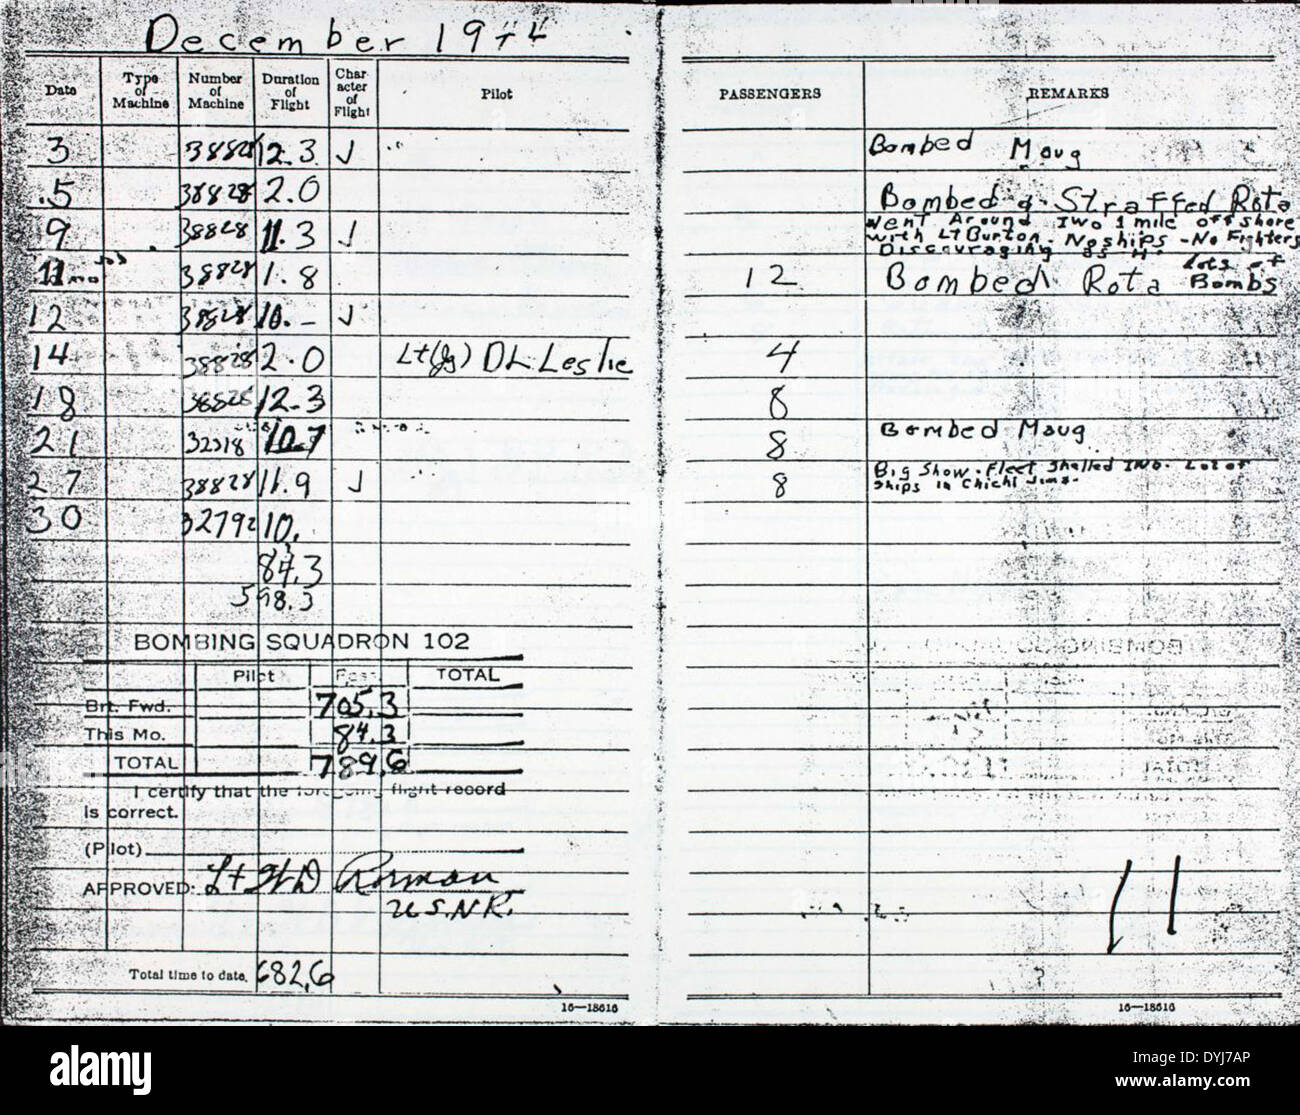 December 1944
Date Type of Machine Number of Machine Duration of Flight Character of Flight Pilot PASSENGERS REMARKS
3 38828 12.3 Bombed Maug
5 38828 2.0 Bombed & Straffed Rota
9 38828 11.3 Went Around Iwo 1 mile off shore
with Lt Burton. No ships - No Fighters
Discouraging as H.
11 38828 1.8 12 Bombed Rota Lots of Bombs
12 38828 10.-
14 38828 2.0 Lt(jg) DL Leslie 4
18 38828 12.3 8
21 10.7 8 Bombed Maug
27 38828 11.9 8 Big Show. Fleet Shelled Iwo. Lot of
Ships in Chichi Jima.
30 32792 10.
84.3
598.3
BOMBING SQUADRON 102
Pilot TOTAL
Brt. Fwd. 705.3
This Mo. 84.3
TOTAL 789.6
I certify that the foregoing flight record
is correct.
(Pilot)
APPROVED: Lt
U.S.N.R.
11
Total time to date, 682.6
16—18616 16—18616
alamy
DYJ7AP
www.alamy.com